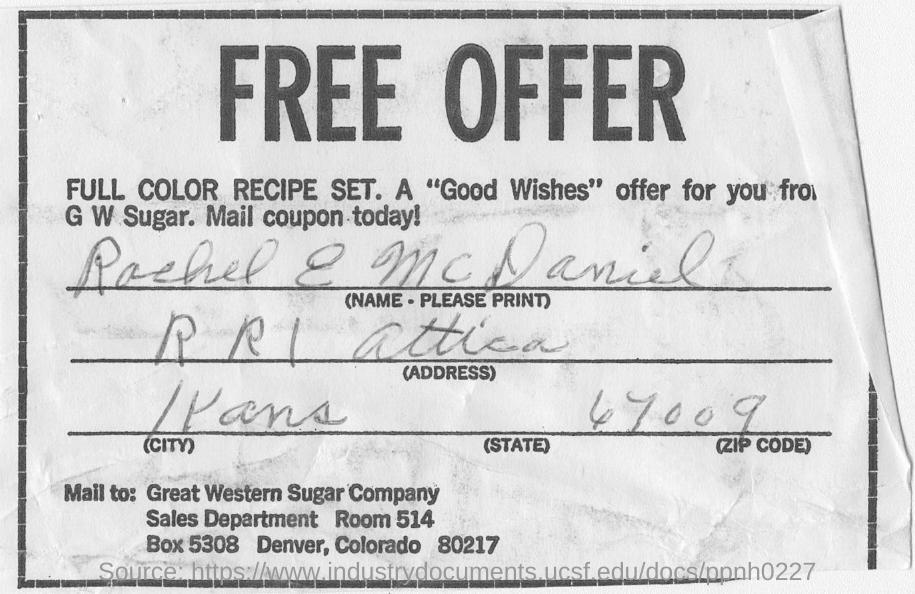 FREE OFFER
FULL COLOR RECIPE SET. A "Good Wishes" offer for you fro
G W Sugar. Mail coupon today!
Rachel E McDaniel
(NAME - PLEASE PRINT)
R R 1 Attica
(ADDRESS)
Kans 67009
(CITY) (STATE) (ZIP CODE)
Mail to: Great Western Sugar Company
Sales Department Room 514
Box 5308 Denver, Colorado 80217
Source: https://www.industrydocuments.ucsf.edu/docs/ppnh0227